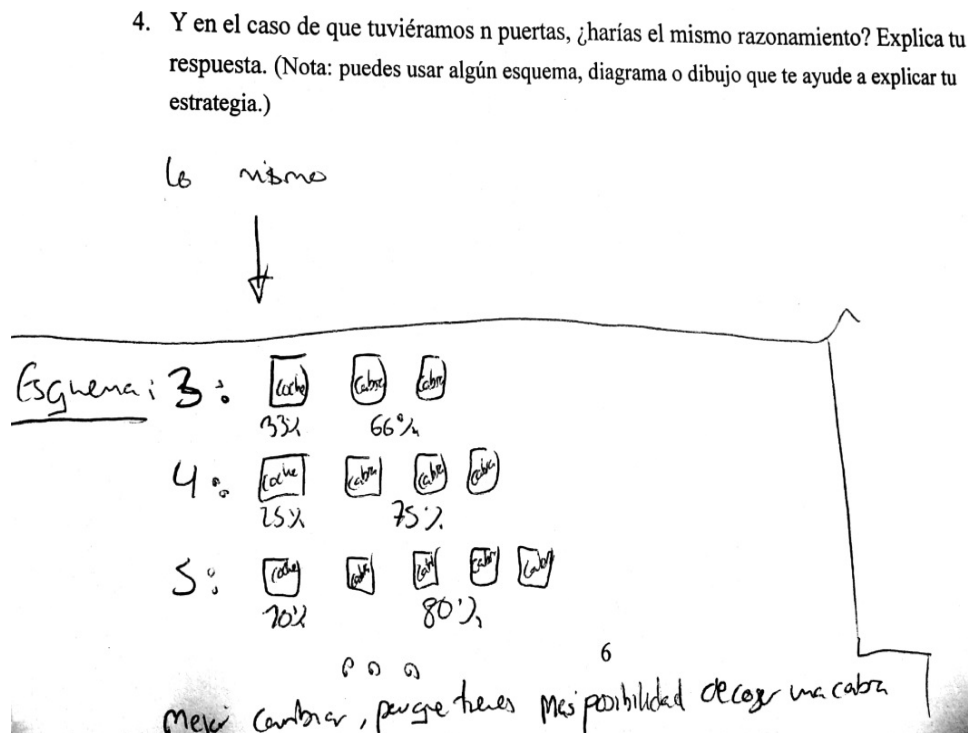 4. Y en el caso de que tuviéramos n puertas, ¿harías el mismo razonamiento? Explica tu
respuesta. (Nota: puedes usar algún esquema, diagrama o dibujo que te ayude a explicar tu
estrategia.)
lo mismo
Esquema: 3: coche cabra cabra
33% 66%
4: coche cabra cabra cabra
25% 75%
5: coche cabra cabra cabra cabra
20% 80%
6
...
mejor cambiar, porque tienes mas posibilidad de coger una cabra